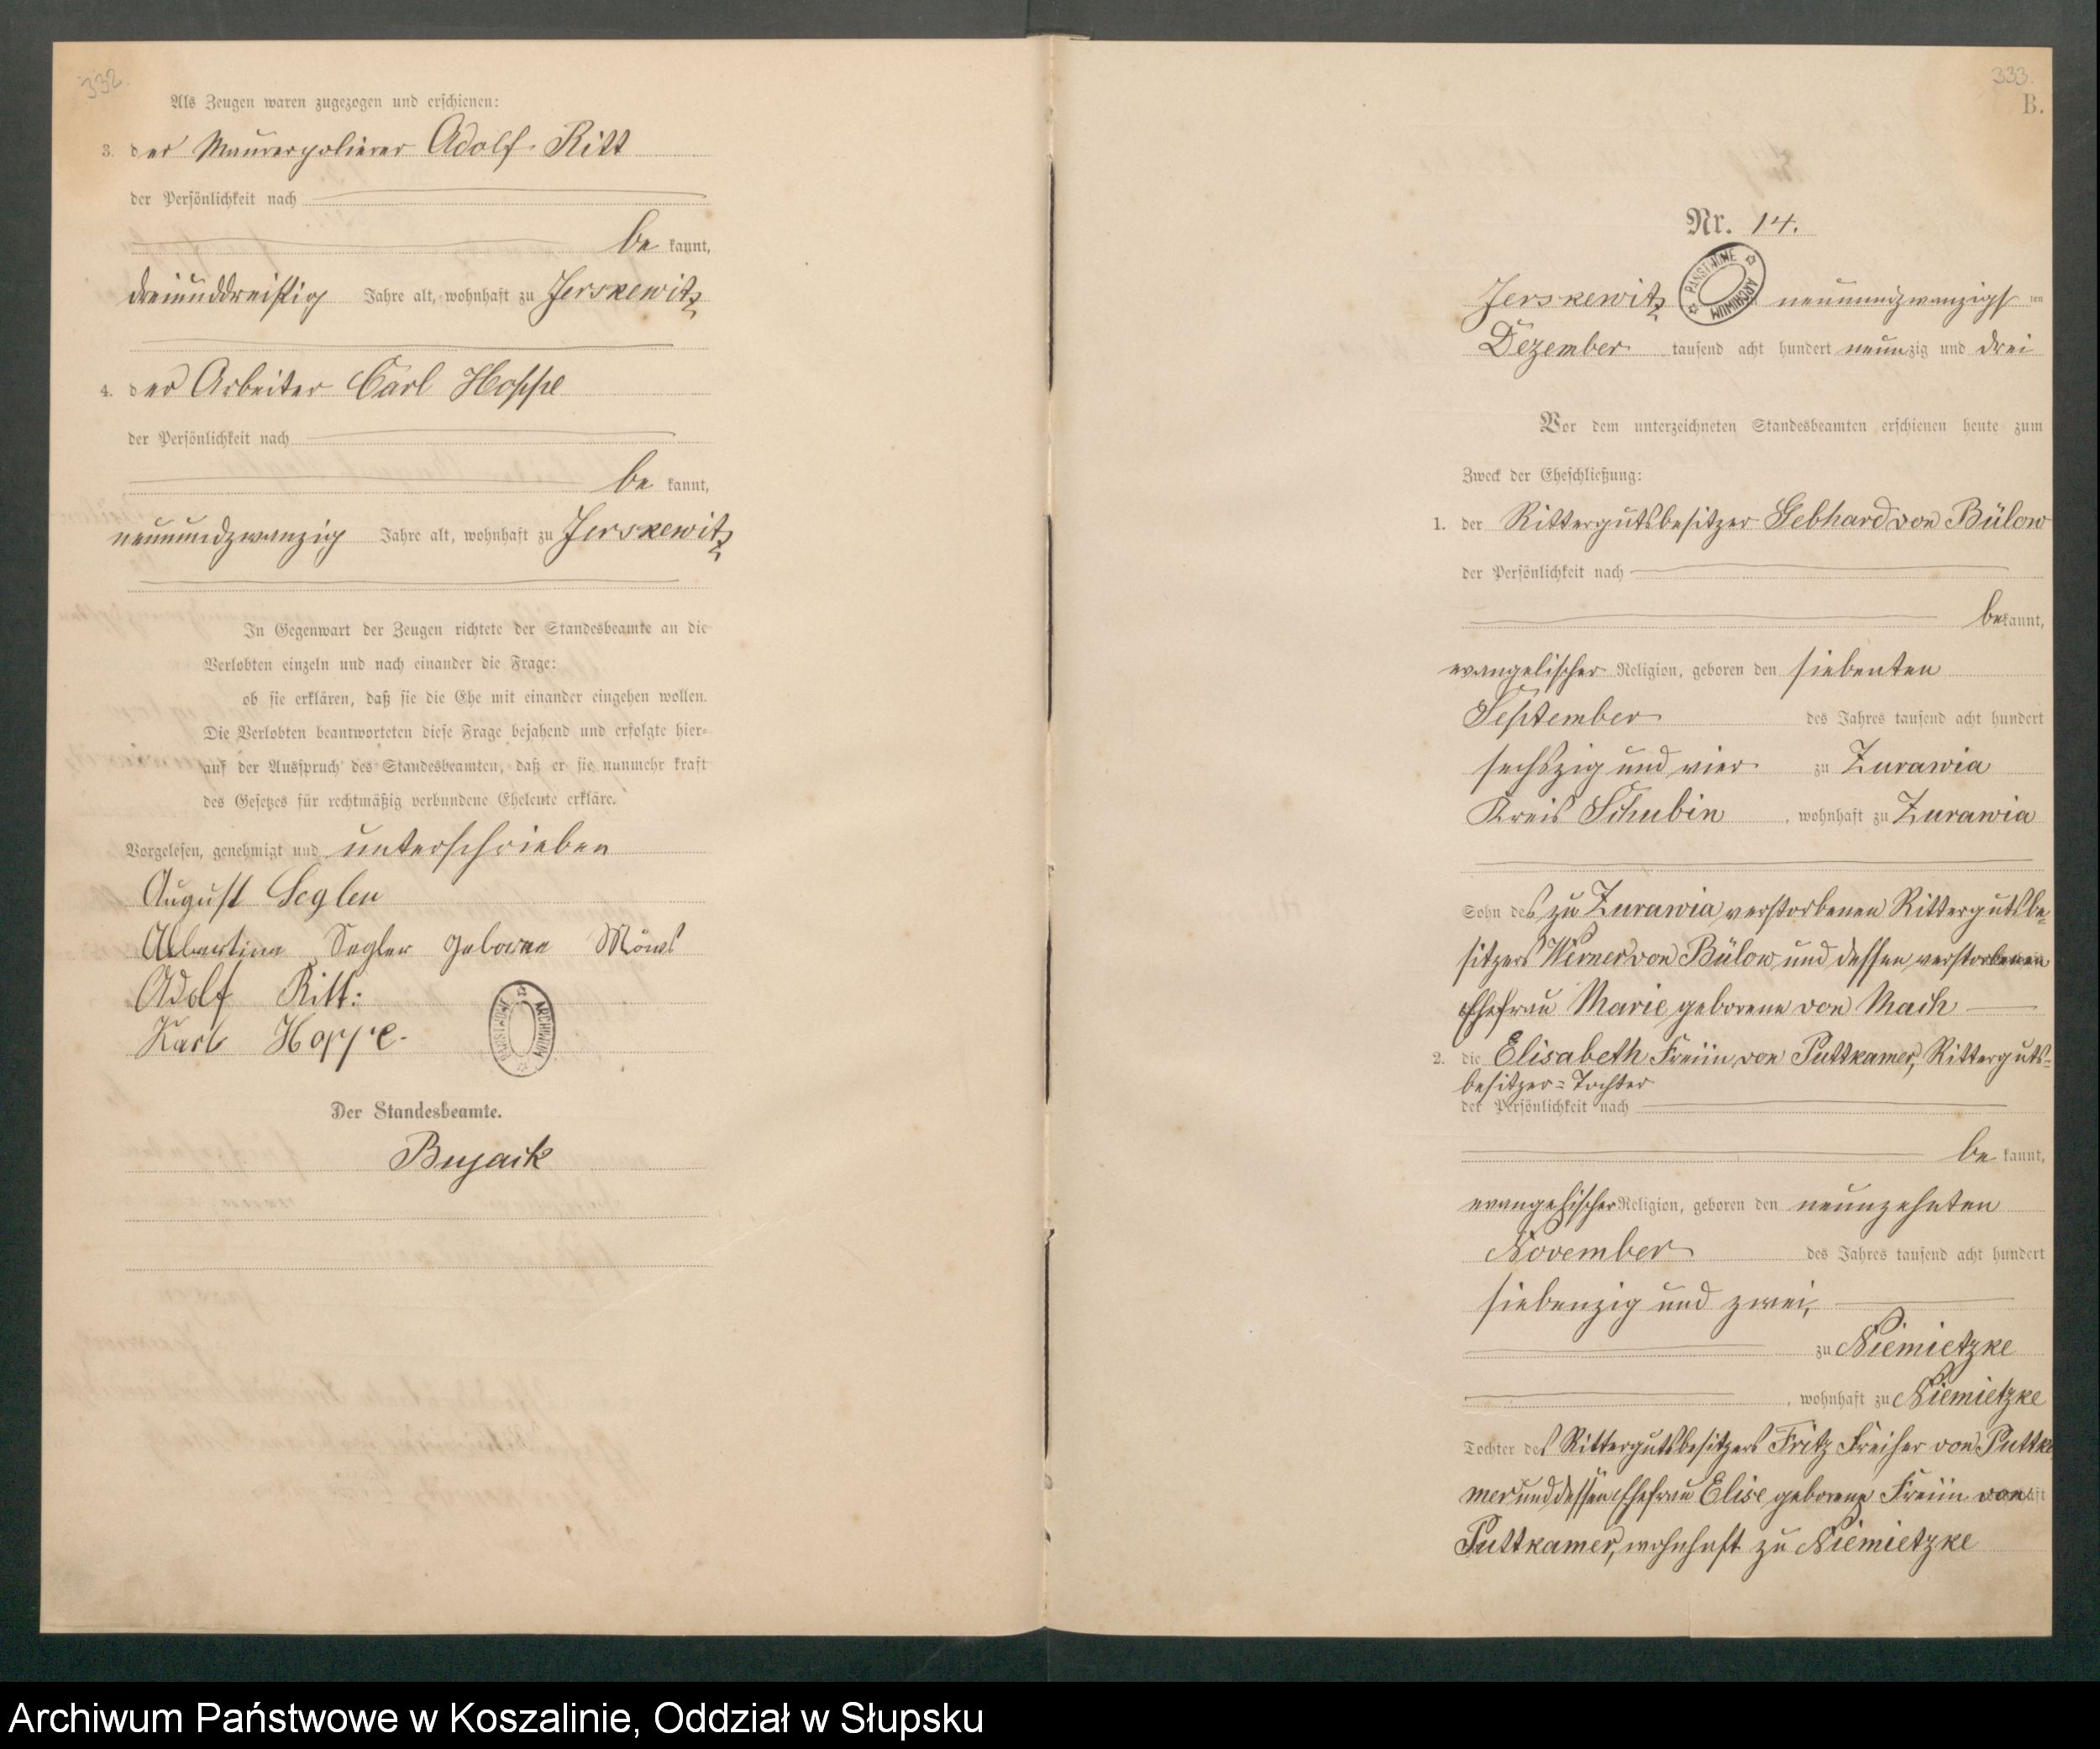 332.
Als Zeugen waren zugezogen und erschienen:
3. der Maurerpolierer Adolf Ritt
der Persönlichkeit nach
be kannt,
dreiunddreißig Jahre alt, wohnhaft zu Jerskewitz
4. der Arbeiter Carl Hoppe
der Persönlichkeit nach
be kannt,
neunundzwanzig Jahre alt, wohnhaft zu Jerskewitz
In Gegenwart der Zeugen richtete der Standesbeamte an die
Verlobten einzeln und nach einander die Frage:
ob sie erklären, daß sie die Ehe mit einander eingehen wollen.
Die Verlobten beantworteten diese Frage bejahend und erfolgte hier-
auf der Ausspruch des Standesbeamten, daß er sie nunmehr kraft
des Gesetzes für rechtmäßig verbundene Eheleute erkläre.
Vorgelesen, genehmigt und unterschrieben
August Segler
Albertine Segler geborne Möws
Adolf Ritt:
Karl Hoppe.
PAŃSTWOWE ARCHIWUM
Der Standesbeamte.
Bujack
333.
B.
Nr. 14.
PAŃSTWOWE ARCHIWUM
Jerskewitz neunundzwanzigsten
Dezember tausend acht hundert neunzig und drei
Vor dem unterzeichneten Standesbeamten erschienen heute zum
Zweck der Eheschließung:
1. der Rittergutsbesitzer Gebhard von Bülow
der Persönlichkeit nach
bekannt,
evangelischer Religion, geboren den siebenten
September des Jahres tausend acht hundert
sechszig und vier zu Zurawia
Kreis Schubin, wohnhaft zu Zurawia
Sohn des zu Zurawia verstorbenen Rittergutsbe-
sitzers Werner von Bülow und dessen verstorbenen
Ehefrau Marie geborene von Mach
2. die Elisabeth Freiin von Puttkamer, Ritterguts-
besitzer-Tochter
der Persönlichkeit nach
be kannt,
evangelischer Religion, geboren den neunzehnten
November des Jahres tausend acht hundert
siebenzig und zwei,
zu Niemietzke
, wohnhaft zu Niemietzke
Tochter des Rittergutsbesitzers Fritz Freiher von Puttka
mer und dessen Ehefrau Elise geborene Freiin von
Puttkamer, wohnhaft zu Niemietzke
Archiwum Państwowe w Koszalinie, Oddział w Słupsku